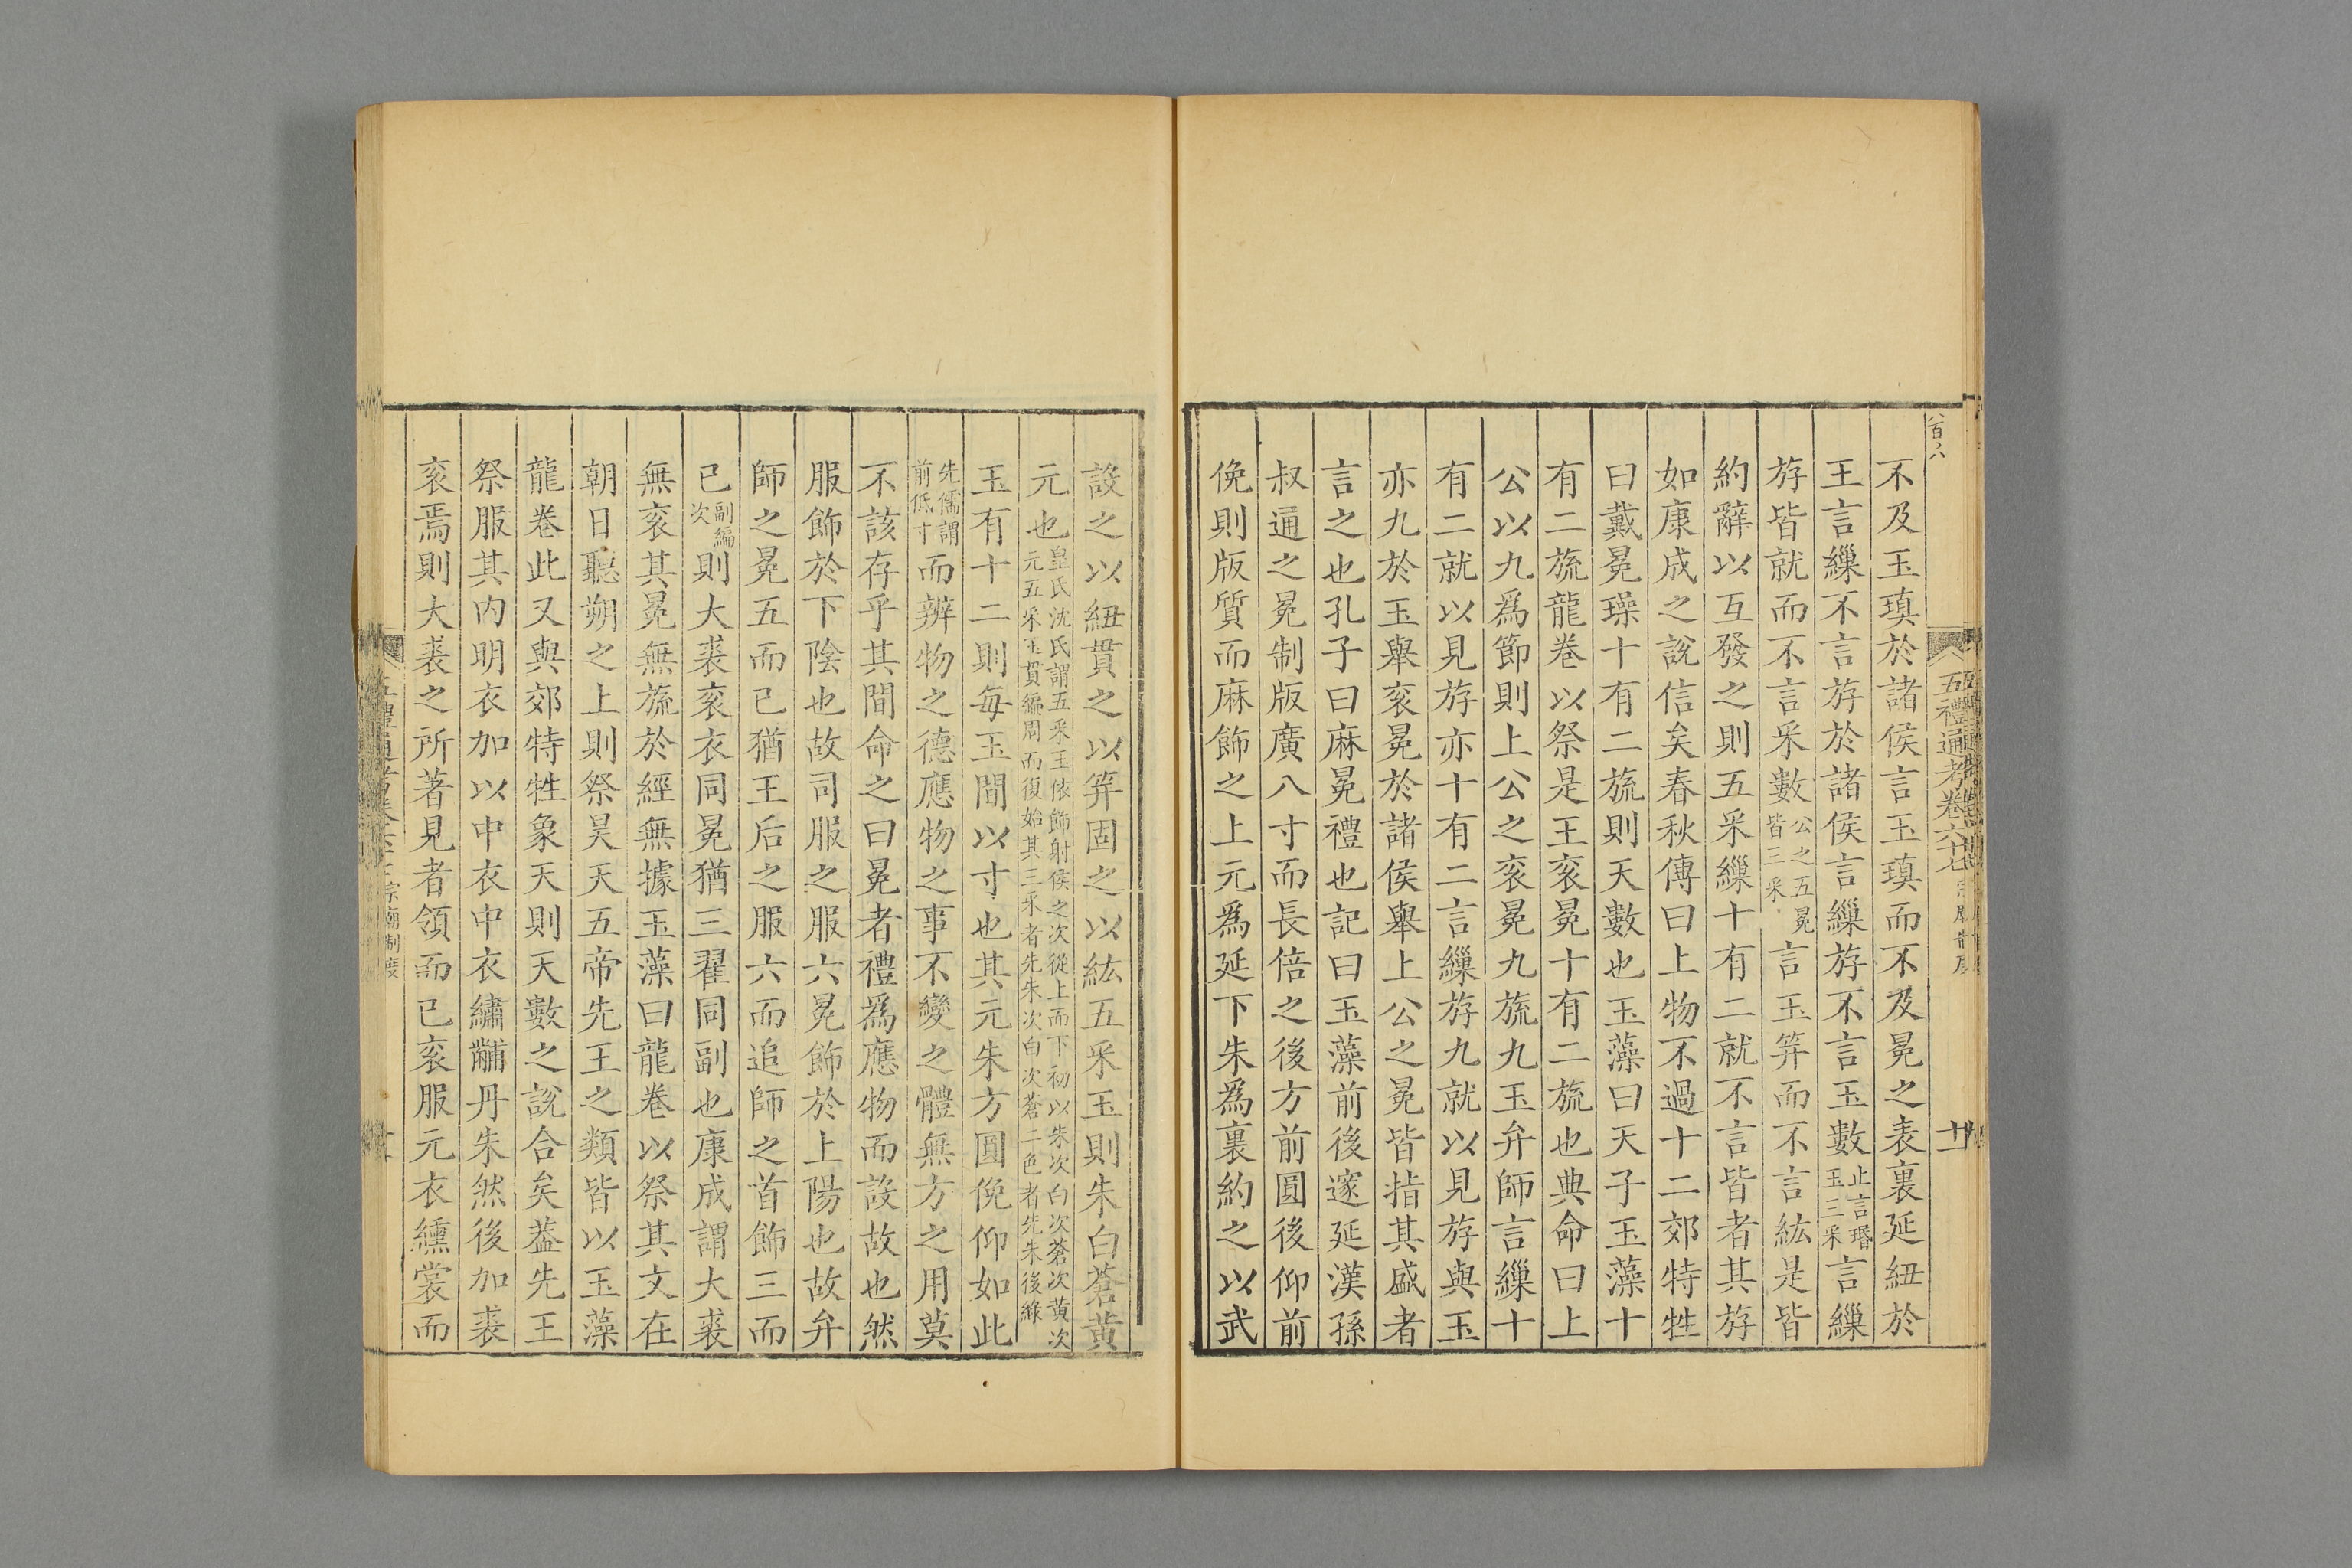 不及玉瑱於諸侯言玉瑱而不及冕之表裏延紐於
王言繅不言斿於諸侯言繅斿不言玉數止言瑉玉三采言繅
斿皆就而不言采數公之五冕皆三采言玉笄而不言紘是皆
約辭以互發之則五采繅十有二就不言皆者其斿
如康成之說信矣春秋傳曰上物不過十二郊特牲
曰戴冕璪十有二旒則天數也玉藻曰天子玉藻十
有二旒龍卷以祭是王衮冕十有二旒也典命曰上
公以九爲節則上公之衮冕九旒九玉弁師言繅十
有二就以見斿亦十有二言繅斿九就以見斿與玉
亦九於玉舉衮冕於諸侯舉上公之冕皆指其盛者
言之也孔子曰麻冕禮也記曰玉藻前後邃延漢孫
叔通之冕制版廣八寸而長倍之後方前圓後仰前
俛則版質而麻飾之上元爲延下朱爲裏約之以武
設之以紐貫之以笄固之以紘五采玉則朱白蒼黄
元也皇氏沈氏謂五采玉依飾射侯之次從上而下初以朱次白次蒼次黄次元五采玉貫徧周而復始其三采者先朱次白次蒼二色者先朱後綠
玉有十二則每玉間以寸也其元朱方圓俛仰如此
先儒謂前低寸而辨物之德應物之事不變之體無方之用莫
不該存乎其間命之曰冕者禮爲應物而設故也然
服飾於下陰也故司服之服六冕飾於上陽也故弁
師之冕五而已猶王后之服六而追師之首飾三而
已副編次則大裘衮衣同冕猶三翟同副也康成謂大裘
無衮其冕無旒於經無據玉藻曰龍卷以祭其文在
朝日聽朔之上則祭昊天五帝先王之類皆以玉藻
龍卷此又與郊特牲象天則天數之說合矣葢先王
祭服其内明衣加以中衣中衣繡黼丹朱然後加裘
衮焉則大裘之所著見者領而已衮服元衣纁裳而